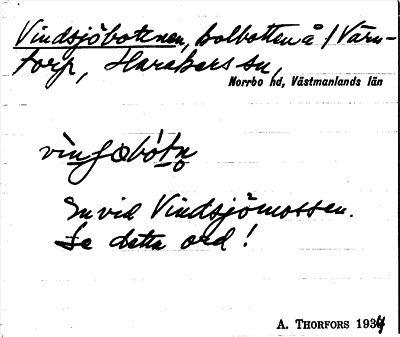 Vindsjöbottnen, kolbotten å / Värm-
torp, Harakers sn,
Norrbo hd, Västmanlands län
Invid Vindsjömossen.
Se detta ord!
A. THORFORS 1934